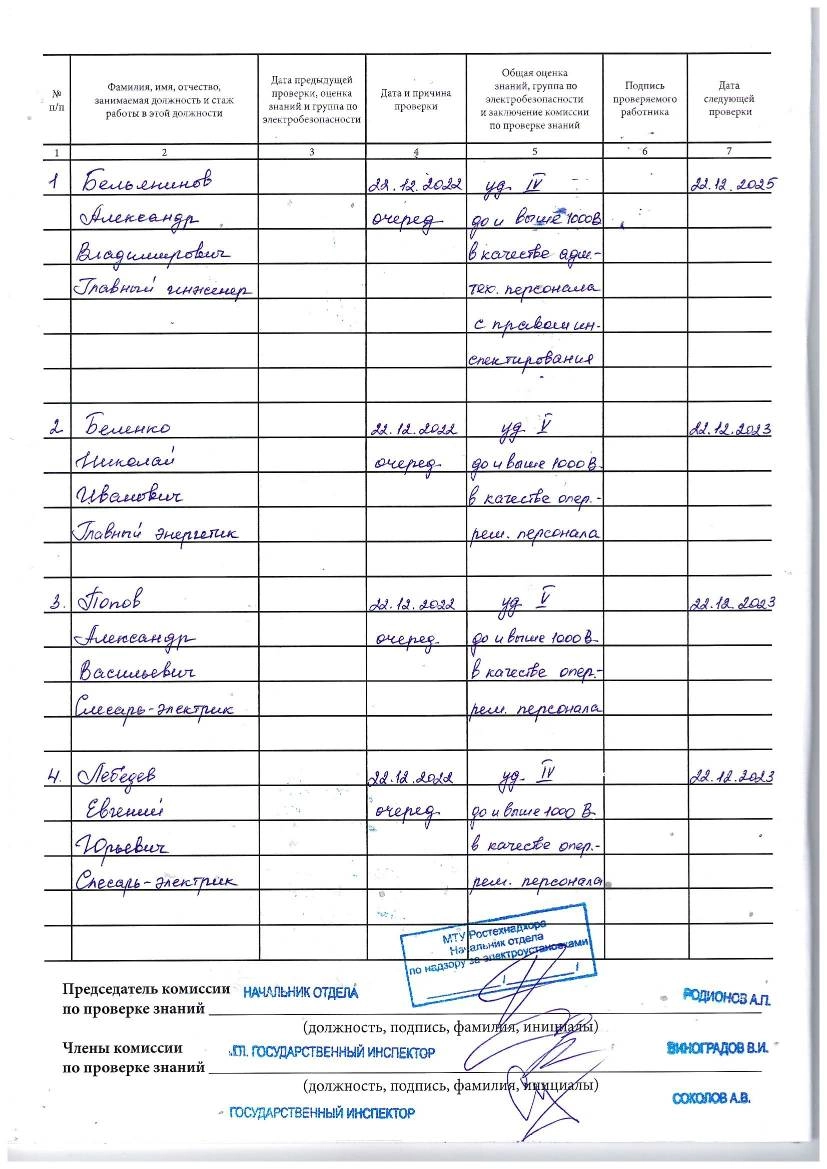 № п/п
Фамилия, имя, отчество, занимаемая должность и стаж работы в этой должности
Дата предыдущей проверки, оценка знаний и группа по электробезопасности
Дата и причина проверки
Общая оценка знаний, группа по электробезопасности и заключение комиссии по проверке знаний
Подпись проверяемого работника
Дата следующей проверки
1 2 3 4 5 6 7
1 Бельянинов 22.12.2022 уд. IV 22.12.2025
Александр очеред до и выше 1000В
Владимирович в качестве адм.-
Главный инженер тех. персонала
с правом ин-
спектирования
2 Беленко 22.12.2022 уд. V 22.12.2023
Николай очеред до и выше 1000 В
Иванович в качестве опер.-
Главный энергетик рем. персонала
3. Попов 22.12.2022 уд V 22.12.2023
Александр очеред. до и выше 1000 В
Васильевич в качестве опер.-
Слесарь-электрик рем. персонала
4. Лебедев 22.12.2022 уд. IV 22.12.2023
Евгений очеред до и выше 1000 В
Юрьевич в качестве опер.-
Слесарь-электрик рем. персонала
МТУ Ростехнадзора
Начальник отдела
по надзору за электроустановками
Председатель комиссии НАЧАЛЬНИК ОТДЕЛА РОДИОНОВ А.П.
по проверке знаний
(должность, подпись, фамилия, инициалы)
Члены комиссии ГЛ. ГОСУДАРСТВЕННЫЙ ИНСПЕКТОР ВИНОГРАДОВ В.И.
по проверке знаний
(должность, подпись, фамилия, инициалы)
ГОСУДАРСТВЕННЫЙ ИНСПЕКТОР СОКОЛОВ А.В.